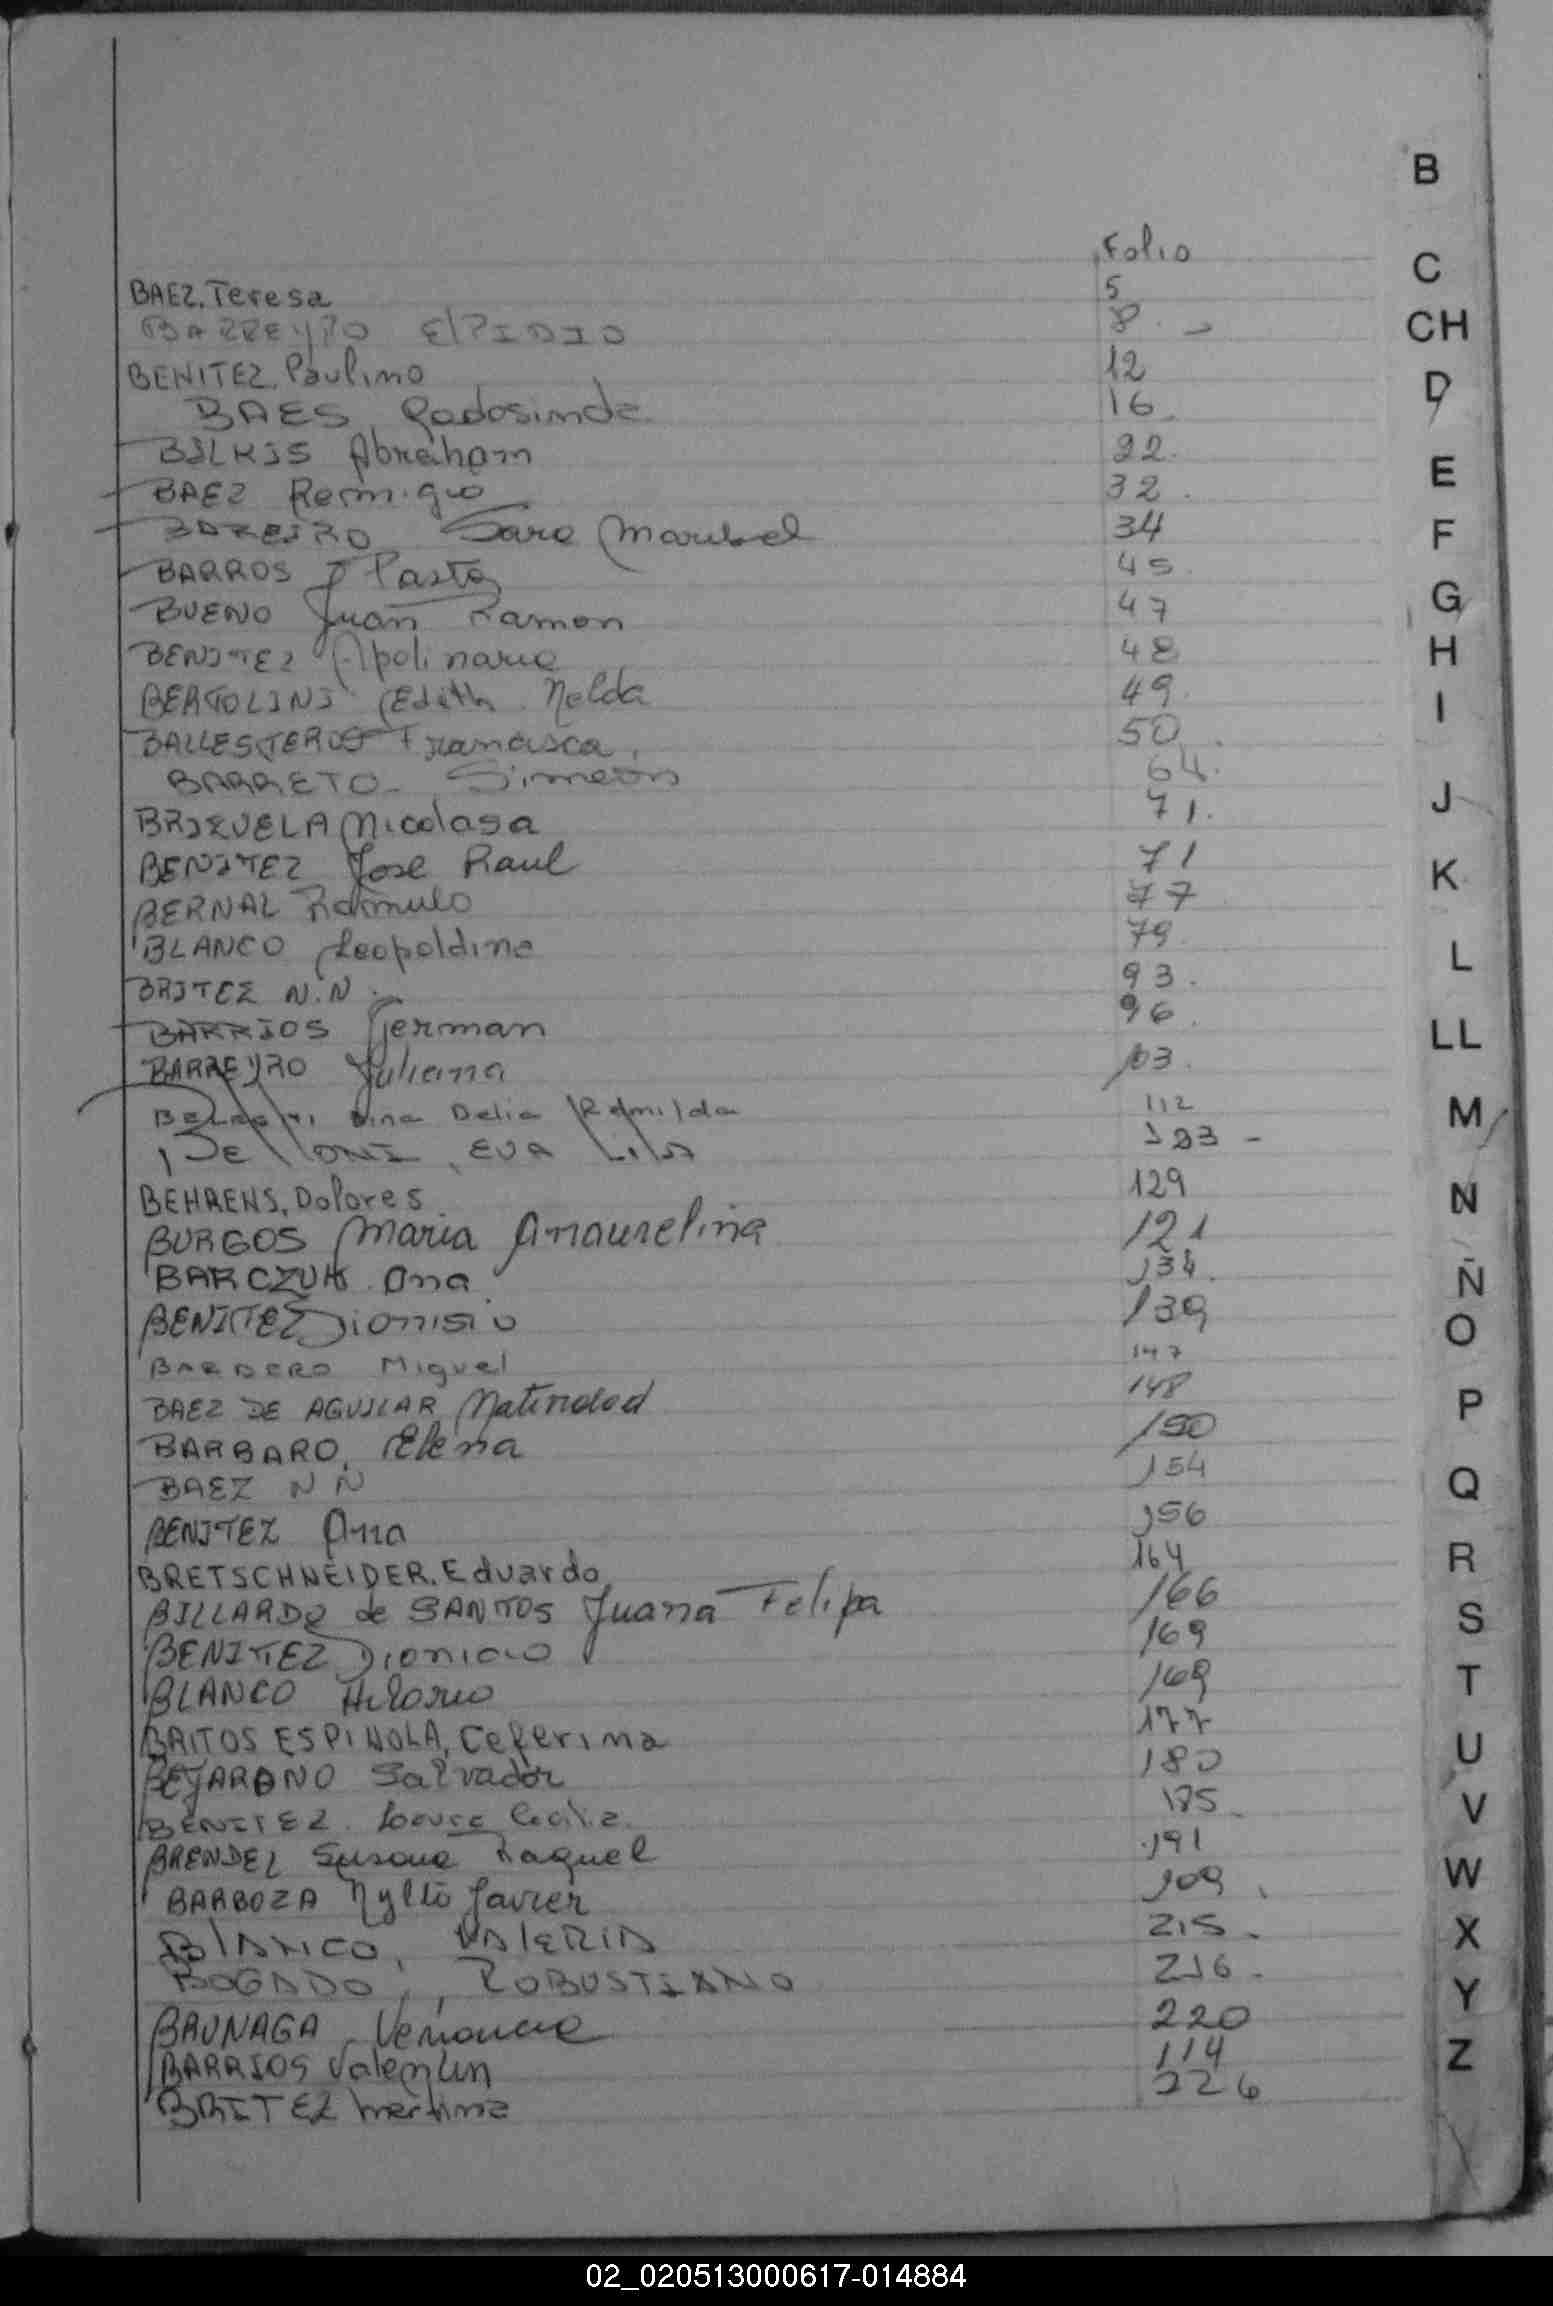 Folio
BAEZ, Teresa 5
BARREYRO ElPIDIO 8
BENITEZ, Paulino 12
BAES Radosinda 16
BILKIS Abraham 22
BAEZ Remigio 32
BAREIRO Sara Maribel 34
BARROS Pasto 45
BUENO Juan Ramon 47
BENITEZ Apolinaria 48
BERTOLINI Edith Nelda 49
BALLESTEROS Francisca 50
BARRETO Simeon 64
BRIZUELA Nicolasa 71
BENITEZ Jose Raul 71
BERNAL Romulo 77
BLANCO Leopoldina 79
BRITEZ N.N. 93
BARRIOS German 96
BARREYRO Juliana 103
Dina Delia Romilda 112
EVA 123
BEHRENS, Dolores 129
BURGOS Maria Anaurelina 121
BARCZUK Ana 134
BENITEZ Dionisio 139
BARDERO Miguel 147
BAEZ DE AGUILAR Natividad 148
BARBARO, Elena 150
BAEZ NN 154
BENITEZ Ana 156
BRETSCHNEIDER, Eduardo 164
BILLARDO de SANTOS Juana Felipa 166
BENITEZ Dionicio 169
BLANCO Hilario 169
BRITOS ESPINOLA, Ceferina 177
BEJARANO Salvador 180
BENITEZ Laura Cecilia 185
BRENDEL Susana Raquel 191
BARBOZA Javier
BlANCO, VAlERIA 215
BOGADO, ROBUSTIANO 216
BAUNAGA Venancia 220
BARRIOS Valentin 114
BRITEZ Martina 226
B
C
CH
D
E
F
G
H
I
J
K
L
LL
M
N
Ñ
O
P
Q
R
S
T
U
V
W
X
Y
Z
02_020513000617-014884